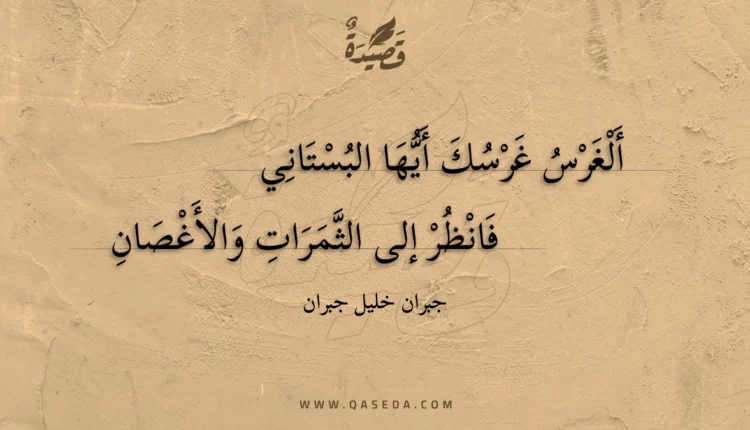 قَصِيْدَةٌ
أَلْغَرْسُ غَرْسُكَ أَيُّهَا البُسْتَانِي
فَانْظُرْ إلى الثَّمَرَاتِ وَالأَغْصَانِ
جبران خليل جبران
WWW.QASEDA.COM